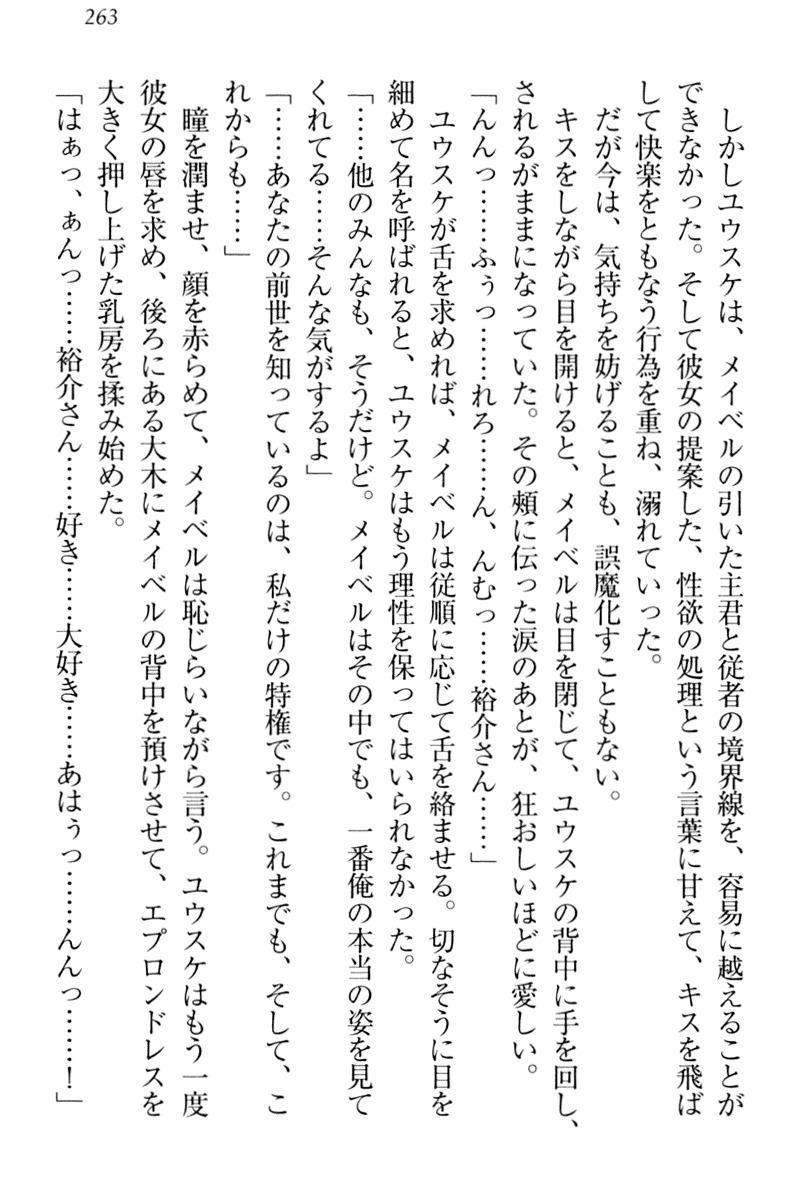 263
しかしユウスケは、メイベルの引いた主君と従者の境界線を、容易に越えることが
できなかった。そして彼女の提案した、性欲の処理という言葉に甘えて、キスを飛ば
して快楽をともなう行為を重ね、溺れていった。
だが今は、気持ちを妨げることも、誤魔化すこともない。
キスをしながら目を開けると、メイベルは目を閉じて、ユウスケの背中に手を回し、
されるがままになっていた。その頰に伝った涙のあとが、狂おしいほどに愛しい。
「んんっ……ふぅっ……れろ……ん、んむっ……裕介さん……」
ユウスケが舌を求めれば、メイベルは従順に応じて舌を絡ませる。切なそうに目を
細めて名を呼ばれると、ユウスケはもう理性を保ってはいられなかった。
「……他のみんなも、そうだけど。メイベルはその中でも、一番俺の本当の姿を見て
くれてる……そんな気がするよ」
「……あなたの前世を知っているのは、私だけの特権です。これまでも、そして、こ
れからも……」
瞳を潤ませ、顔を赤らめて、メイベルは恥じらいながら言う。ユウスケはもう一度
彼女の唇を求め、後ろにある大木にメイベルの背中を預けさせて、エプロンドレスを
大きく押し上げた乳房を揉み始めた。
「はぁっ、ぁんっ……裕介さん……好き……大好き……あはぅっ……んんっ……！」